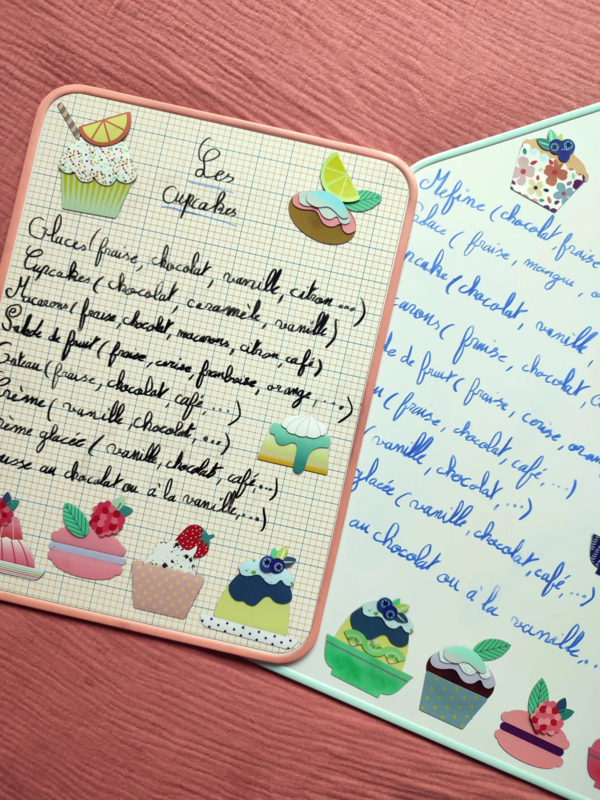 Les
Cupcakes
Glaces (fraise, chocolat, vanille, citron...)
Cupcakes (chocolat, caramèle, vanille)
Macarons (fraise, chocolat, macarons, citron, café)
Salade de fruit (fraise, cerise, framboise, orange....)
Gateau (fraise, chocolat, café,...)
Crème (vanille, chocolat,...)
rème glacée (vanille, chocolat, café,...)
usse au chocolat ou à la vanille,...)
Mefine (chocolat, fraise
(fraise, mangue,
pcake (chocolat, vanille,
carons (fraise, chocolat,
de de fruit (fraise, cerise, oran
u (fraise, chocolat, café,...)
(vanille, chocolat,...)
glacée (vanille, chocolat, café,...)
au chocolat ou à la vanille,...